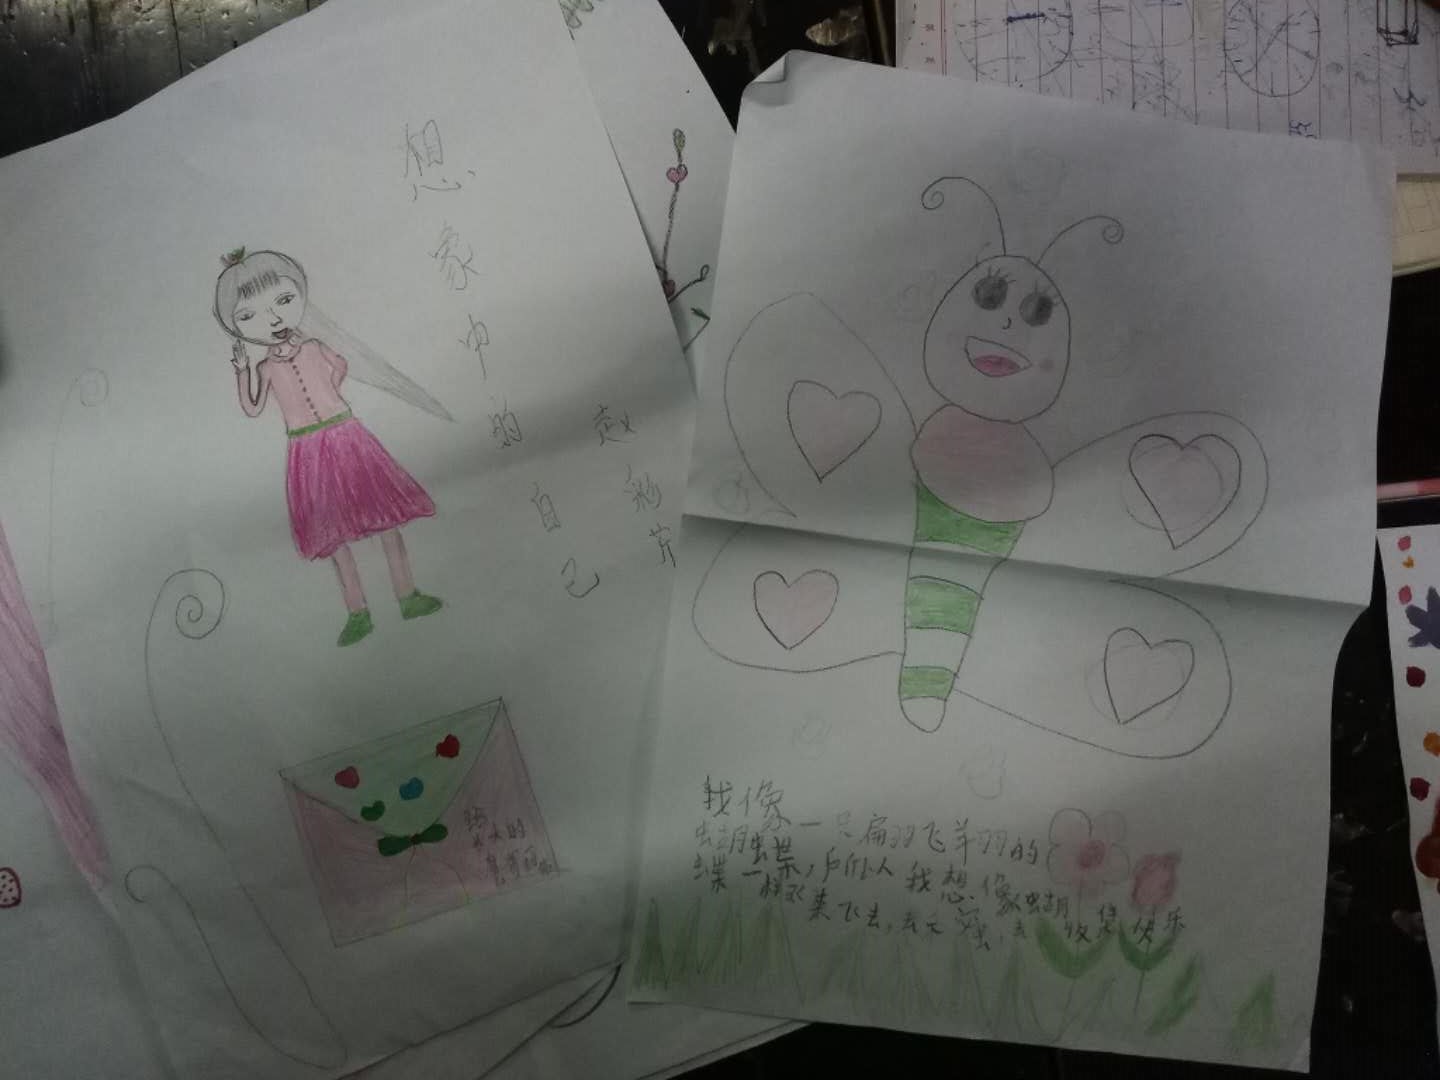 想象中的自己
赵彩芹
我像一只扇羽飞羊羽的
蝴蝶,所以人我想像蝴
蝶一样飞来飞去,去采蜜,去收货快乐